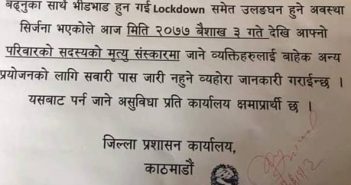 बढ्नुका साथै भीडभाड हुन गई Lockdown समेत उलङघन हुने अवस्था
सिर्जना भएकोले आज मिति २०७७ बैशाख ३ गते देखि आफ्नो
परिवारको सदस्यको मृत्यु संस्कारमा जाने व्यक्तिहरुलाई बाहेक अन्य
प्रयोजनको लागि सवारी पास जारी नहुने व्यहोरा जानकारी गराईन्छ ।
यसबाट पर्न जाने असुविधा प्रति कार्यालय क्षमाप्रार्थी छ ।
जिल्ला प्रशासन कार्यालय,
काठमाडौं